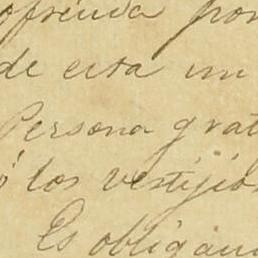 ofrenda por
de esta un
Persona grat
ó los vestijios
Es obligan